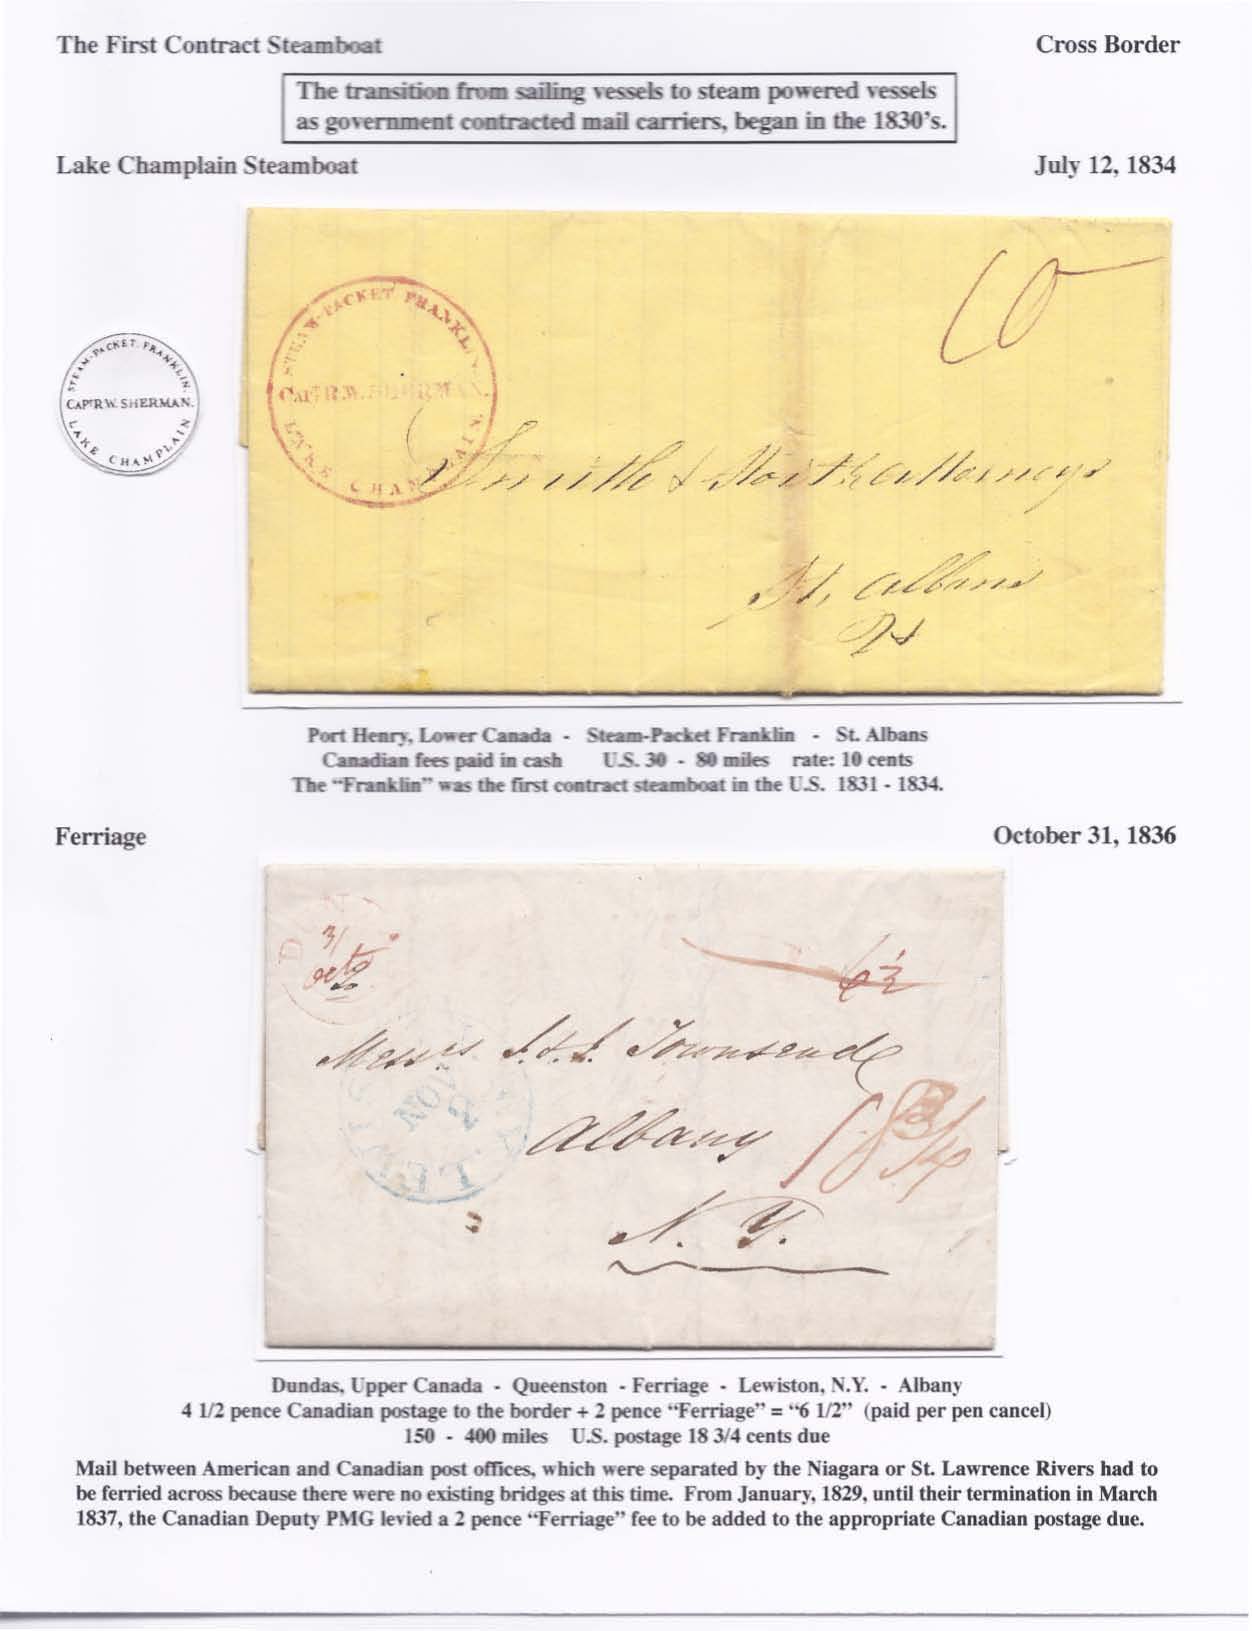 The First Contract Steamboat
Cross Border
The transition from sailing vessels to steam powered vessels
as government contracted mail carriers, began in the 1830's.
Lake Champlain Steamboat
July 12, 1834
STEAM-PACKET FRANKLIN.
CAPT R.W. SHERMAN.
LAKE CHAMPLAIN
STEAM-PACKET FRANKLIN.
CAPT R.W. SHERMAN.
LAKE CHAMPLAIN
10
Smith & North Attorneys
St, Albans
Vt
Port Henry, Lower Canada - Steam-Packet Franklin - St. Albans
Canadian fees paid in cash U.S. 30 - 80 miles rate: 10 cents
The "Franklin" was the first contract steamboat in the U.S. 1831 - 1834.
Ferriage
October 31, 1836
DUN
31
Octo
6 1/2
Messrs J. & J. Townsend
NOV
2
Albany
18 3/4
N. Y.
Dundas, Upper Canada - Queenston - Ferriage - Lewiston, N.Y. - Albany
4 1/2 pence Canadian postage to the border + 2 pence "Ferriage" = "6 1/2" (paid per pen cancel)
150 - 400 miles U.S. postage 18 3/4 cents due
Mail between American and Canadian post offices, which were separated by the Niagara or St. Lawrence Rivers had to
be ferried across because there were no existing bridges at this time. From January, 1829, until their termination in March
1837, the Canadian Deputy PMG levied a 2 pence "Ferriage" fee to be added to the appropriate Canadian postage due.